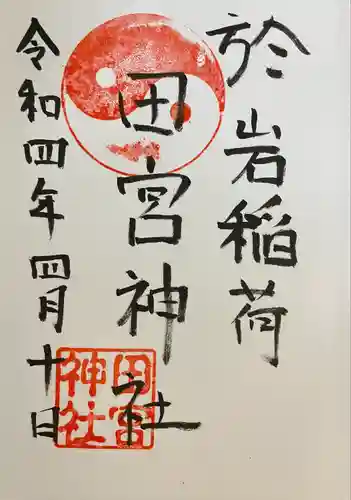 於岩稲荷
田宮神社
令和四年四月十日
田宮
神社